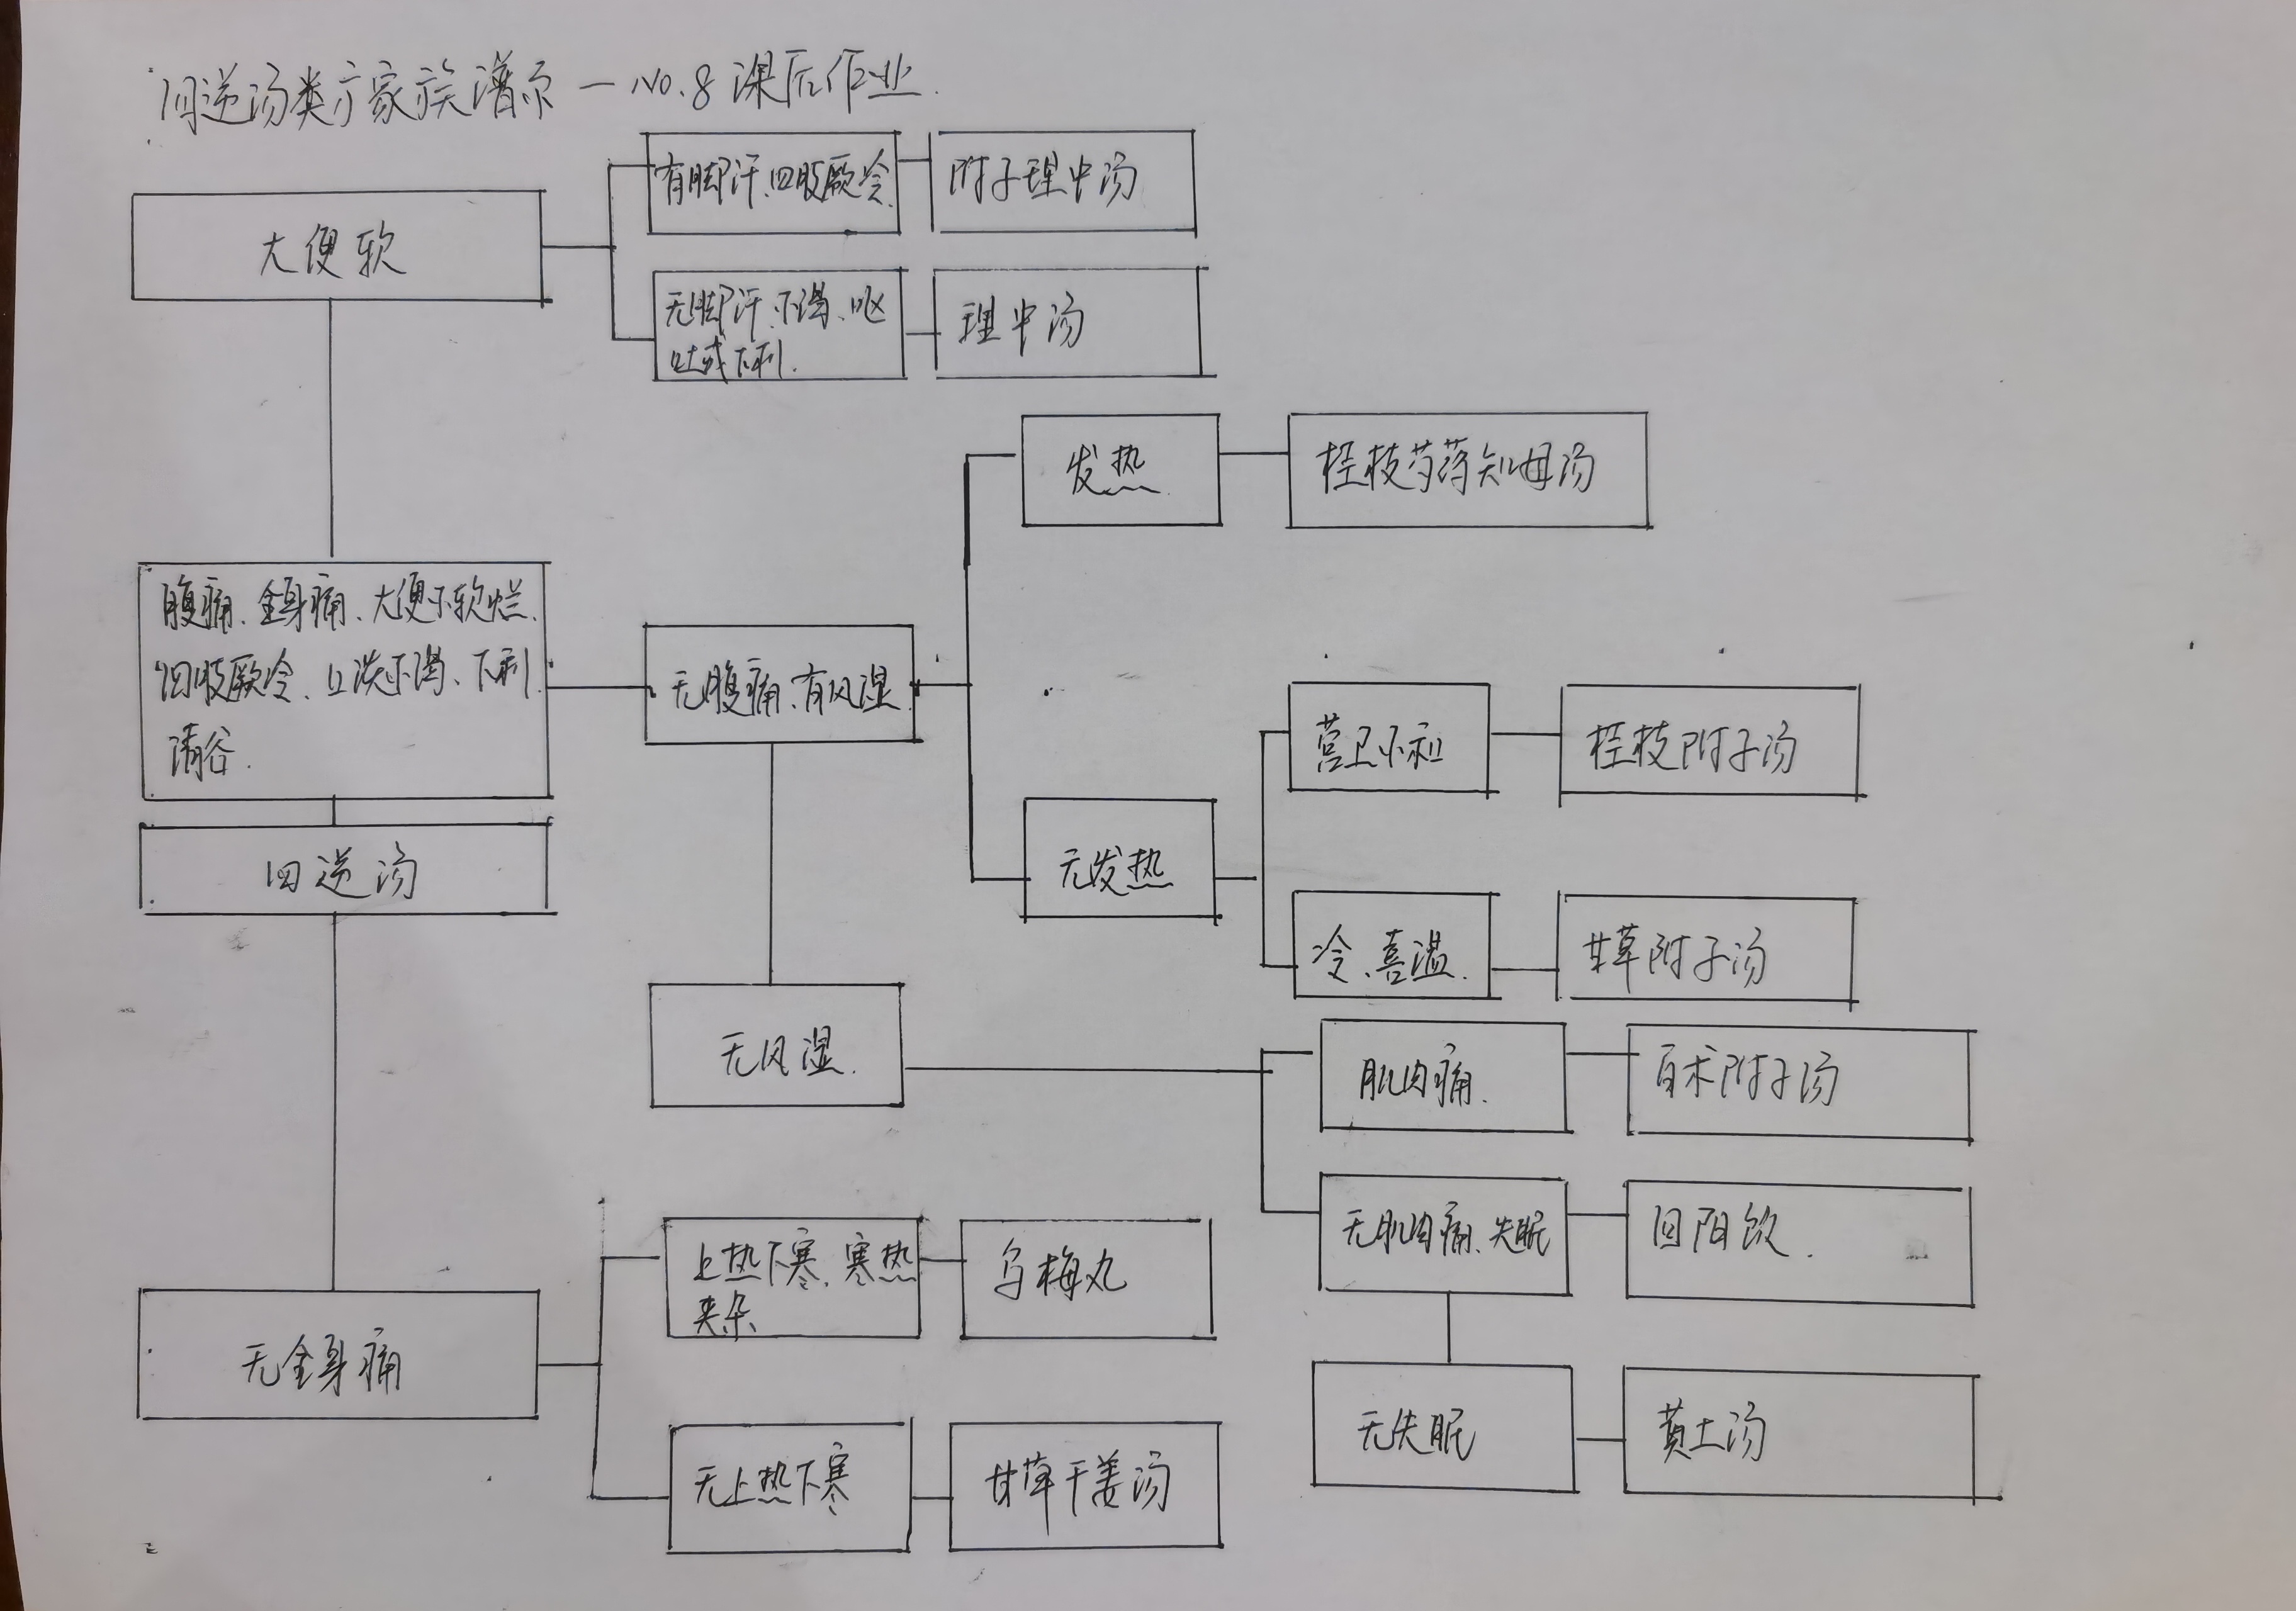 四逆汤类方家族谱系 — No.8 课后作业
有脚汗、四肢厥冷
附子理中汤
大便软
无脚汗、不渴、呕
吐或下利.
理中汤
发热
桂枝芍药知母汤
腹痛、全身痛、大便不软烂、
四肢厥冷、口淡不渴、下利
清谷.
无腹痛、有风湿
营卫不和
桂枝附子汤
四逆汤
无发热
冷、喜温.
甘草附子汤
无风湿.
肌肉痛.
白术附子汤
无肌肉痛、失眠
回阳饮.
上热下寒、寒热
夹杂
乌梅丸
无全身痛
无失眠
黄土汤
无上热下寒
甘草干姜汤